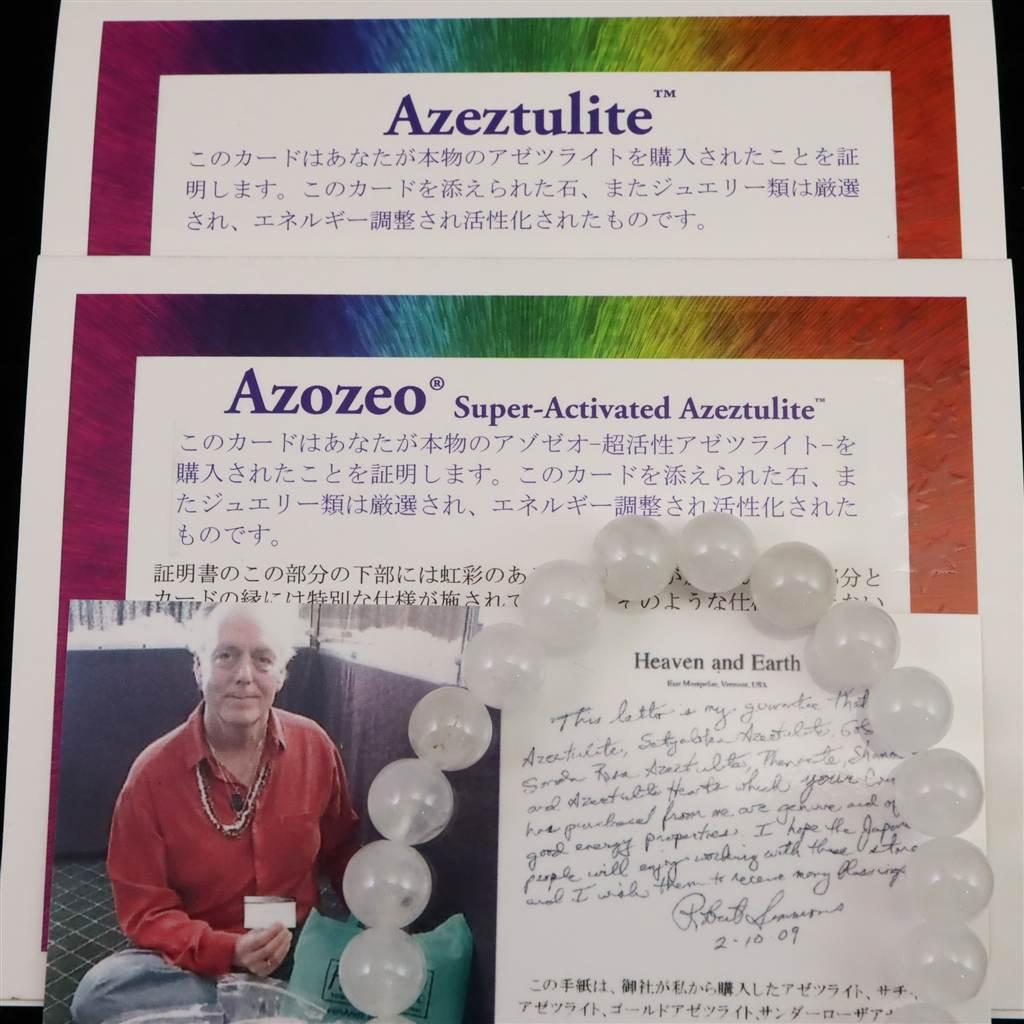 Azeztulite™
このカードはあなたが本物のアゼツライトを購入されたことを証
明します。このカードを添えられた石、またジュエリー類は厳選
され、エネルギー調整され活性化されたものです。
Azozeo® Super-Activated Azeztulite™
このカードはあなたが本物のアゾゼオ−超活性アゼツライト−を
購入されたことを証明します。このカードを添えられた石、ま
たジュエリー類は厳選され、エネルギー調整され活性化された
ものです。
証明書のこの部分の下部には虹彩のあ 部分と
カードの縁には特別な仕様が施されて そのような仕 ない
Heaven and Earth
East Montpelier, Vermont, USA
This letter is my guarantee that
Azeztulite, Satyaloka Azeztulite, Gold
Sanda Rosa Azeztulite,
and Azeztulite Hearts which your
has purchased from me are genuine and of
good energy properties. I hope the Japan
people will enjoy working with these stone
and I wish them to receive many blessings
Robert Simmons
2-10-09
この手紙は、御社が私から購入したアゼツライト、サチ
アゼツライト、ゴールドアゼツライト、サンダーローザア